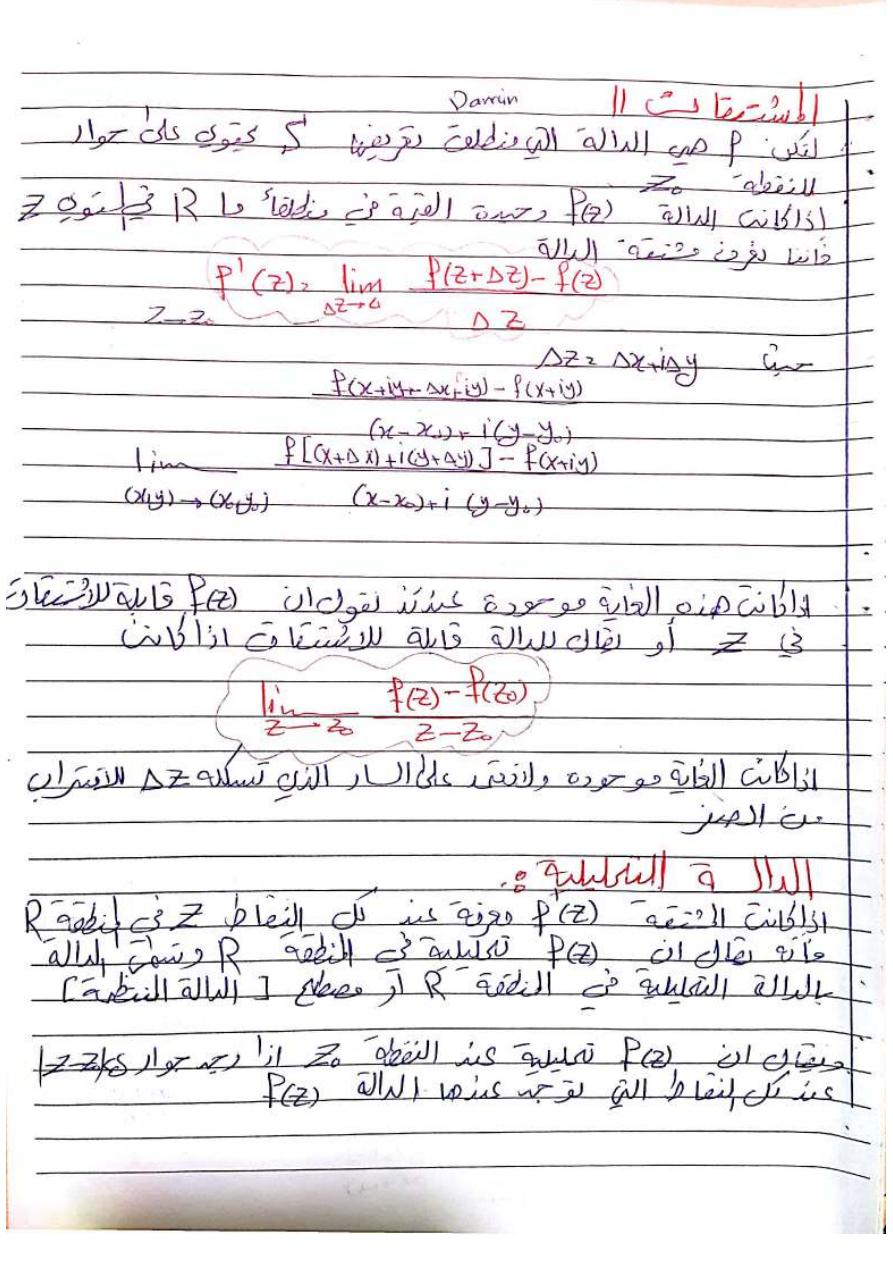 المشتقات ||
Darrin
لتكن f هي الدالة التي منطلقة تعريفها S يحتوي على جوار
للنقطة Z₀
اذا كانت الدالة f(z) وحيدة القيمة في منطلقة ما R في المستوي Z
فاننا نعرف مشتقة الدالة
f'(z) = lim f(z+Δz) - f(z)
Δz→0
Z→Z₀ Δz
حيث Δz = Δx+iΔy
f(x+iy+Δx+iy) - f(x+iy)
(x-x₀)+i(y-y₀)
lim f[(x+Δx)+i(y+Δy)] - f(x+iy)
(x,y)→(x₀,y₀) (x-x₀)+i(y-y₀)
اذا كانت هذه الغاية موجودة عندئذ نقول ان f(z) قابلة للاشتقاق
في Z أو يقال للدالة قابلة للاشتقاق اذا كانت
lim f(z)-f(z₀)
z→z₀ z-z₀
اذا كانت الغاية موجوده ولا تعتمد على المسار الذي تسلكه Δz للاقتراب
من الصفر
الدالة التحليلية :.
اذا كانت المشتقة f'(z) معرفة عند كل النقاط Z في المنطقة R
فأنه يقال ان f(z) تحليلية في المنطقة R وتسمى الدالة
بالدالة التحليلية في المنطقة R أو مصطلح [الدالة المنتظمة]
ويقال ان f(z) تحليلية عند النقطة Z₀ اذا وجد جوار |z-z₀|<δ
عند كل النقاط التي توجد عندها الدالة f(z)